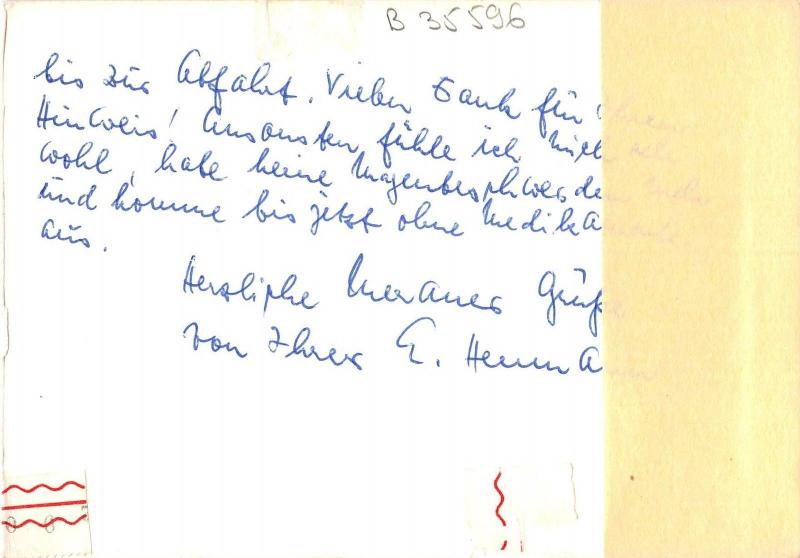 B 35596
bis zur Abfahrt. Vielen Dank für
Hinweis! Ansonsten fühle ich mich
wohl, habe keine Magenbeschwerde
und komme bis jetzt ohne Medika
aus.
Herzliche Meraner Grüße
von Ihrer E. Herrma